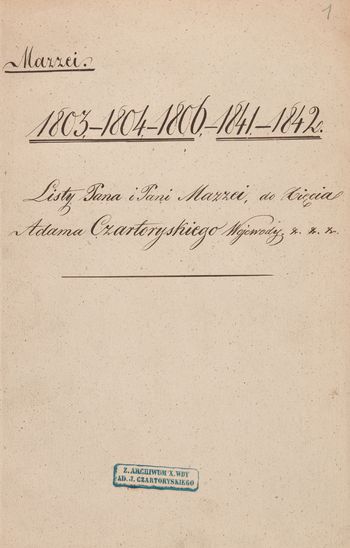 1
Mazzei.
1803,–1804,–1806,–1841,–1842.
Listy Pana i Pani Mazzei, do Xięcia
Adama Czartoryskiego Wojewody, &. &. &.
Z. ARCHIWUM X. WDY
AD. J. CZARTORYSKIEGO